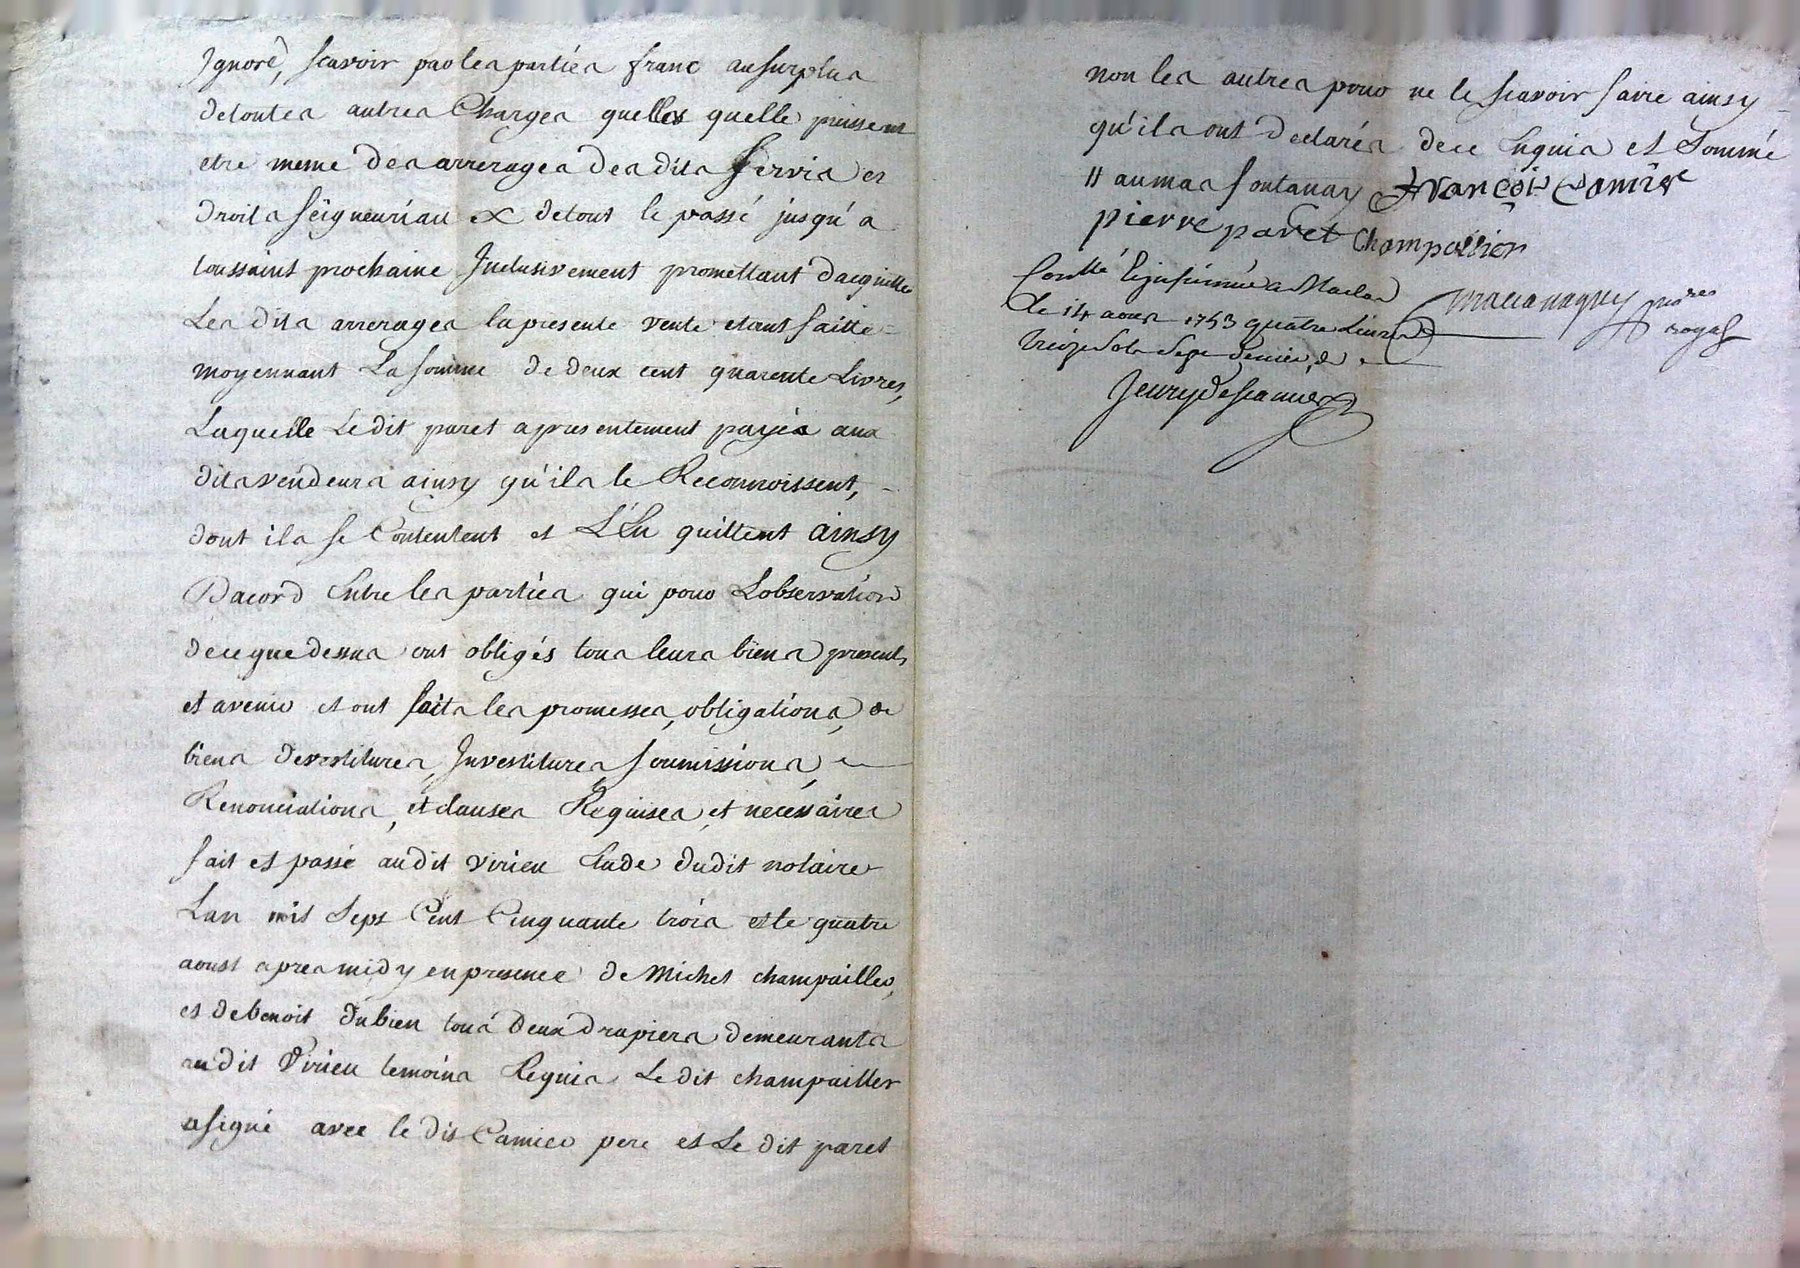 Ignoré, scavoir par les parties franc au surplus
de toutes autres Charges quelles quelle puissent
etre meme des arrerages des dits servis et
droits seigneuriaux de tout le passé jusqu'a
toussaint prochaine Inclusivement promettant d'acquitter
Les dits arrerages la presente vente etant faitte
moyennant La somme de deux cent quarente Livres,
Laquelle Le dit paret a presentement payés aux
dits vendeurs ainsy qu'ils le Reconnoissent,
dont ils se Contentent et L'En quittent ainsy
Dacord Entre les parties qui pour Lobservation
de ce que dessus ont obligés tous leurs biens presents
et avenir et ont faits les promesses, obligations, de
biens devestitures, Investitures soumissions,
Renonciations, et clauses Requises, et necessaires
fait et passé audit virieu Etude dudit notaire
Lan mil Sept Cent Cinquante trois et le quatre
aoust apres midy en presence de Michel champailler,
et de benoit dubien tous deux drapiers demeurants
audit Virieu temoins Requis, Le dit champailler
a signé avec le dit Camier pere et Le dit paret
non les autres pour ne le scavoir faire ainsy
qu'ils ont declarés de ce Enquis et Sommé
François Camier
pierre paret Champallier
Conllé
Le 14 aoust 1753 quatre Livres
treize Sols Sept deniers
royal